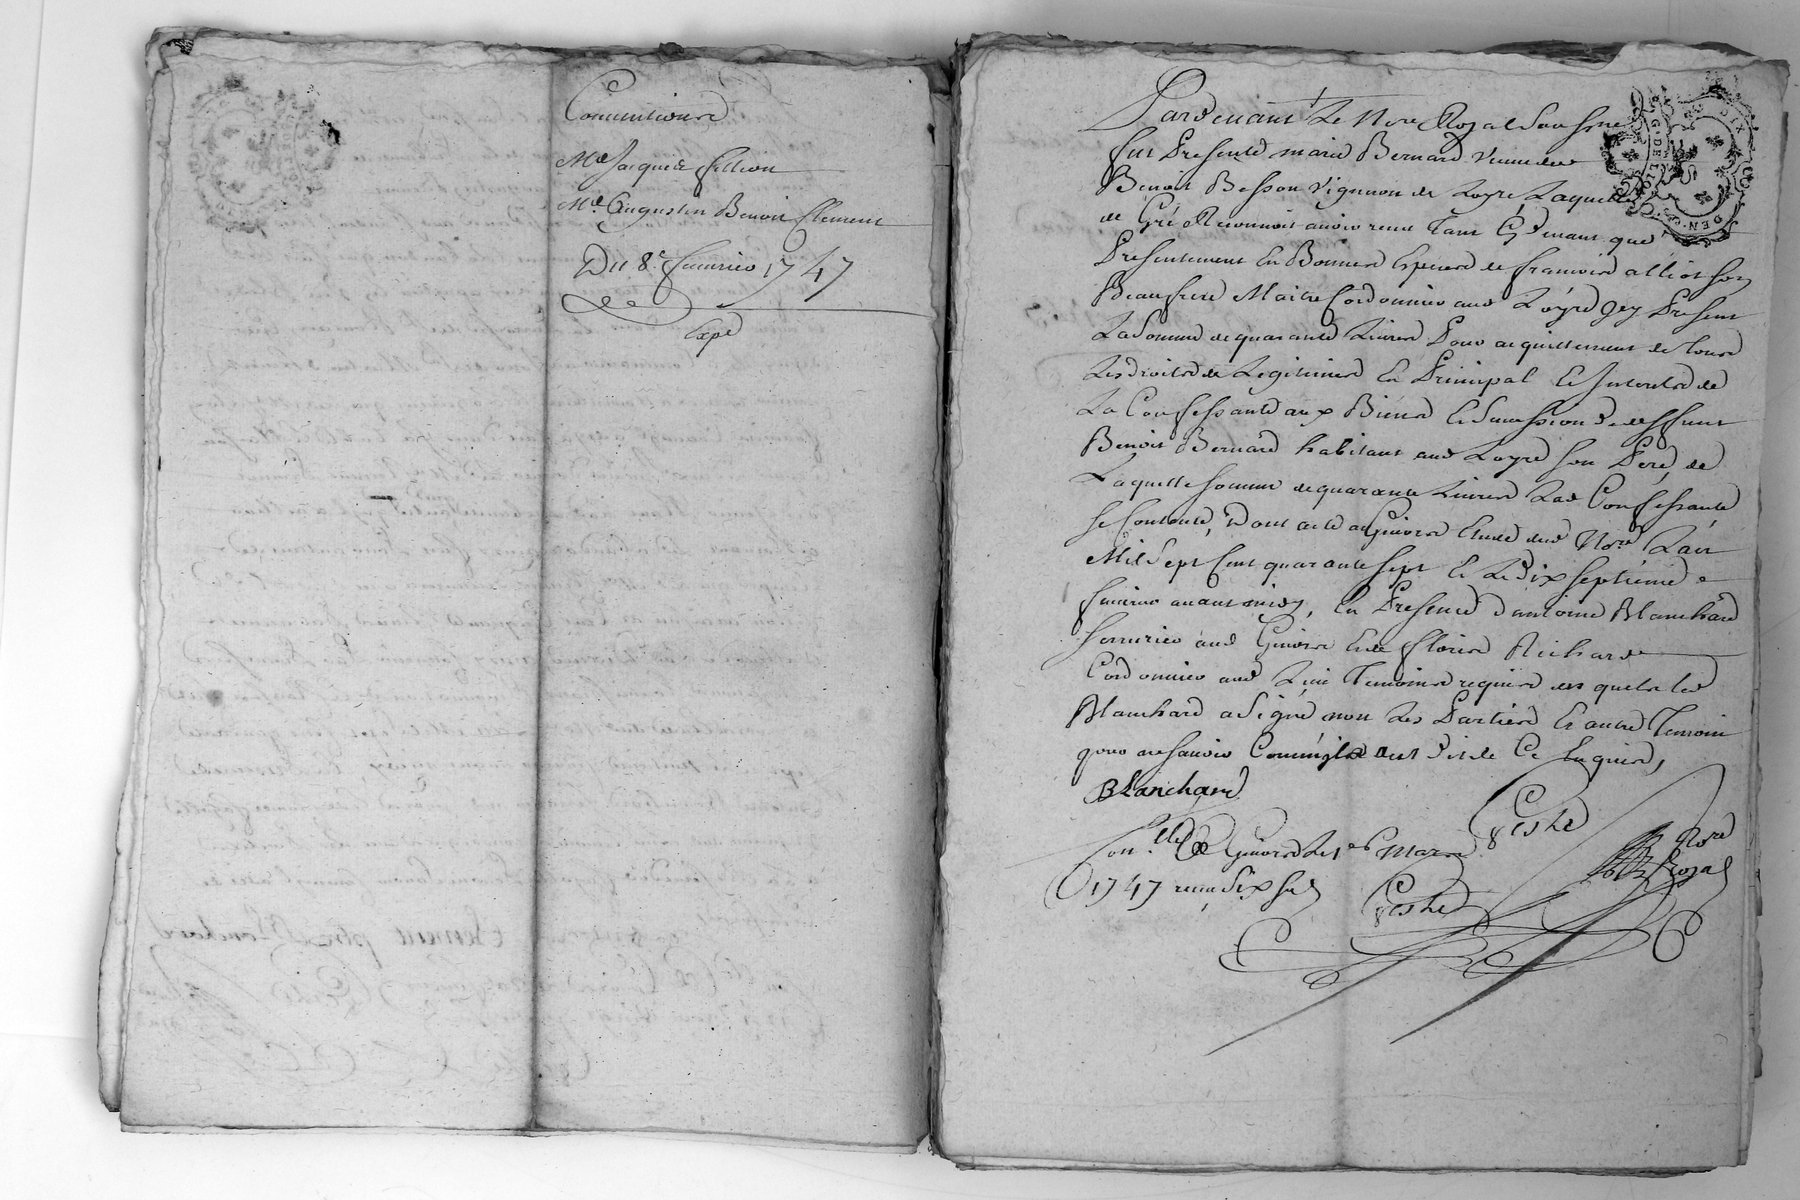 Conventions
Me Jacques fillion
Me Augustin Benoist Clement
Du 8e feuvrier 1747
Expé
Pardevant Le Nore Royal Soussigné
fut Presente marie Bernard veuve de
Benoist Besson vigneron de Loyre Laquelle
de Gré Reconnoit avoir receu tant Cy devant que
Presentement En Bonnes Especes de francois alliot son
Beaufrere Maitre Cordonnier aud Loyre Jcy Present
La Somme de quarante Livres Pour acquittement de tous
Les droits de Legitimes En Principal et Interets de
La Confessante aux Biens et Succession de deffunt
Benoist Bernard habitant aud Loyre son Pere, de
Laquelle somme de quarante Livres Lad Confessante
se Contente, dont acte a Givors Etude dud Nore L'an
Mil Sept Cent quarante sept et Le dix septieme
feuvrier avant midy, En Presence d'antoine Blanchard
serrurier aud Givors et de fleury Richard
Cordonnier aud Lieu Temoins requis desquels led
Blanchard a Signé non Les Parties et autre Temoin
pour ne sauoir Comme ils ont dit de Ce Enquis,
Blanchard
Conllé a Givors Le 1er Mars
1747 receu Six sols
Nore
Royal